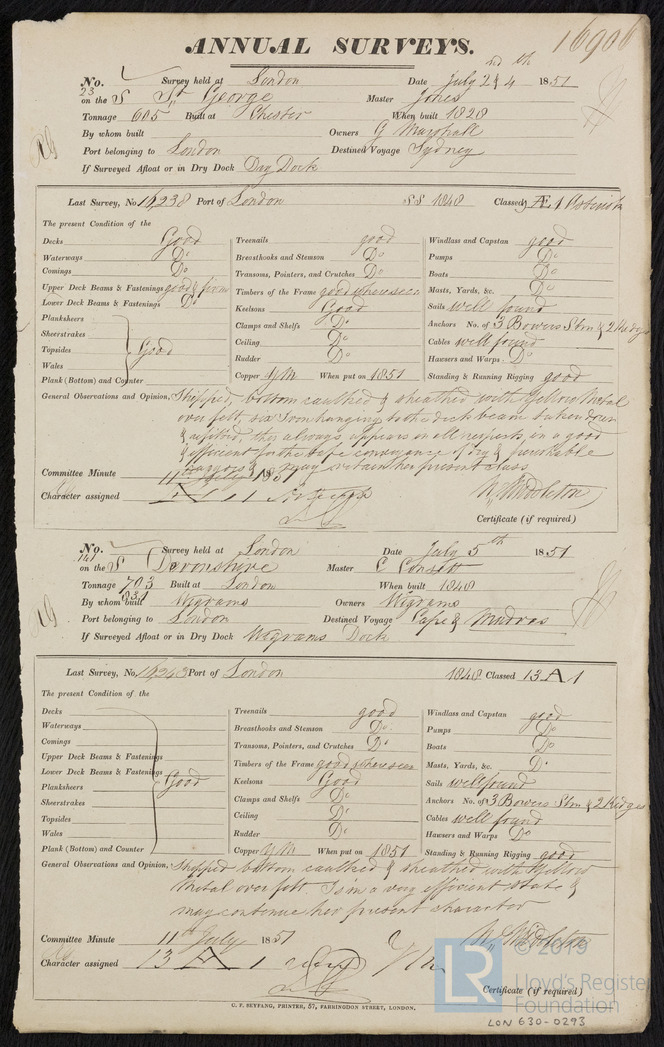 ANNUAL SURVEYS. 16906
No. 23 Survey held at London Date July 2nd & 4th 1851
on the S St George Master Jones
Tonnage 605 Built at Chester When built 1820
By whom built Owners G Marshall
Port belonging to London Destined Voyage Sydney
If Surveyed Afloat or in Dry Dock Dry Dock
Last Survey, No. 16238 Port of London SS 1848 Classed Æ 1
The present Condition of the
Decks Good Treenails good Windlass and Capstan good
Waterways Do Breasthooks and Stemson Do Pumps Do
Comings Do Transoms, Pointers, and Crutches Do Boats Do
Upper Deck Beams & Fastenings good & firm Timbers of the Frame good where seen Masts, Yards, &c. Do
Lower Deck Beams & Fastenings Do Keelsons Good Sails well found
Planksheers Clamps and Shelfs Do Anchors No. of 3 Bowers Strm & 2 Kedges
Sheerstrakes Ceiling Do Cables well found
Topsides Good Rudder Do Hawsers and Warps Do
Wales Copper YM When put on 1851 Standing & Running Rigging good
Plank (Bottom) and Counter
General Observations and Opinion, Stripped, bottom caulked & sheathed with Yellow Metal
over felt, six Iron hanging to the deck beams taken down
& refitted, then always appears in all respects in a good
& efficient for the safe conveyance of dry & perishable
cargoes & may retain her present class
Committee Minute 11 July 1851 W. Middleton
Character assigned Æ 1
Certificate (if required)
No. 141 Survey held at London Date July 5th 1851
on the S Devonshire Master C Consett
Tonnage 703 831 Built at London When built 1848
By whom built Wigrams Owners Wigrams
Port belonging to London Destined Voyage Cape & Madras
If Surveyed Afloat or in Dry Dock Wigrams Dock
Last Survey, No. 16243 Port of London 1848 Classed 13 A 1
The present Condition of the
Decks Treenails good Windlass and Capstan good
Waterways Breasthooks and Stemson Do Pumps Do
Comings Transoms, Pointers, and Crutches Do Boats Do
Upper Deck Beams & Fastenings Timbers of the Frame good where seen Masts, Yards, &c. Do
Lower Deck Beams & Fastenings Keelsons Good Sails well found
Planksheers Good Clamps and Shelfs Do Anchors No. of 3 Bowers Strm & 2 Kedges
Sheerstrakes Ceiling Do Cables well found
Topsides Rudder Do Hawsers and Warps Do
Wales Copper YM When put on 1851 Standing & Running Rigging good
Plank (Bottom) and Counter
General Observations and Opinion, Stripped bottom caulked & sheathed with Yellow
Metal over felt Is in a very efficient state &
may continue her present character
Committee Minute 11th July 1851 W. Middleton
Character assigned 13 A 1
Certificate (if required)
C. F. SEYFANG, PRINTER, 57, FARRINGDON STREET, LONDON.
LR © 2019
Lloyd's Register
Foundation
LON 630-0293